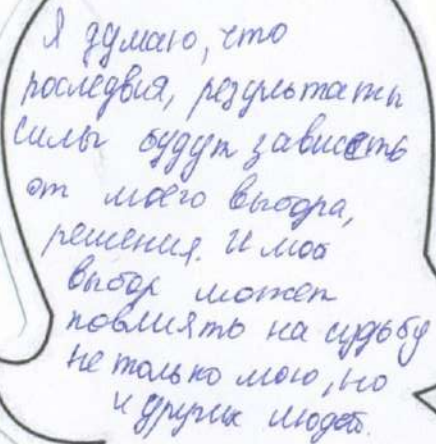 Я думаю, что
последвия, результаты
силы будут зависеть
от моего выбора,
решения. И мой
выбор может
повлиять на судьбу
не только мою, но
и других людей.